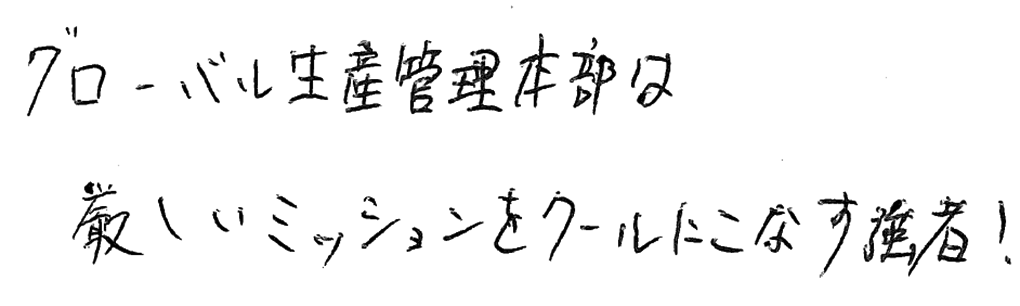 グローバル生産管理本部は
厳しいミッションをクールにこなす強者！